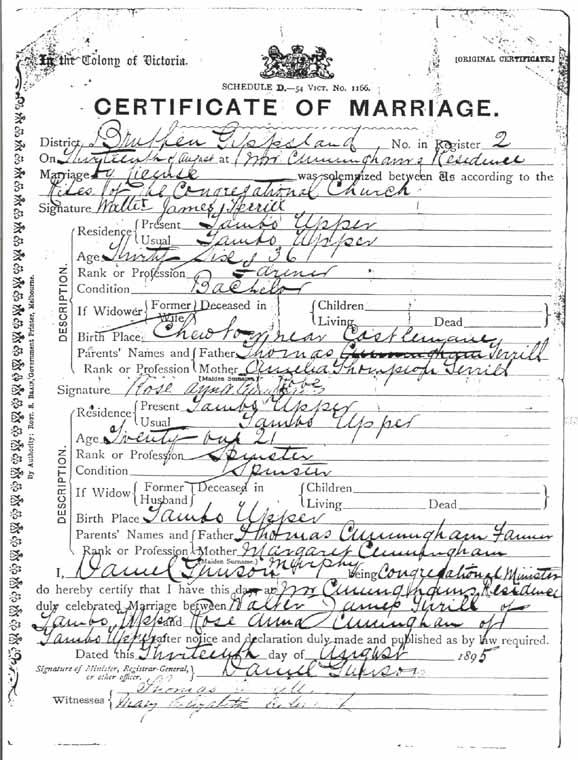 In the Colony of Victoria.
[ORIGINAL CERTIFICATE.]
SCHEDULE D.—54 VICT. NO. 1166.
CERTIFICATE OF MARRIAGE.
District, Bruthen Gippsland No. in Register 2
On Thirteenth of August at Mr Cunningham's Residence
Marriage by license was solemnized between us according to the
Rites of the Congregational Church
Signature Walter James Terrill
Residence Present Tambo Upper
Usual Tambo Upper
Age Thirty Six 36
Rank or Profession Farmer
Condition Bachelor
DESCRIPTION.
If Widower Former Wife Deceased in Children
Living Dead
Birth Place Chewton near Castlemaine
Parents' Names and Father Thomas Cunningham Terrill
Rank or Profession Mother Amelia Thompson Terrill
(Maiden Surname.)
Signature Rose Anna
Residence Present Tambo Upper
Usual Tambo Upper
Age Twenty one 21
Rank or Profession Spinster
Condition Spinster
DESCRIPTION.
If Widow Former Husband Deceased in Children
Living Dead
Birth Place Tambo Upper
Parents' Names and Father Thomas Cunningham Farmer
Rank or Profession Mother Margaret Cunningham
(Maiden Surname.) Murphy
I, Daniel Gunson being Congregational Minister
do hereby certify that I have this day at Mr Cunninghams Residence
duly celebrated Marriage between Walter James Terrill of
Tambo Upper and Rose Anna Cunningham of
Tambo Upper after notice and declaration duly made and published as by law required.
Dated this Thirteenth day of August 1895
Signature of Minister, Registrar-General, or other officer. Daniel Gunson
Witnesses Thomas
Mary Elizabeth
By Authority: ROBT. S. BRAIN, Government Printer, Melbourne.